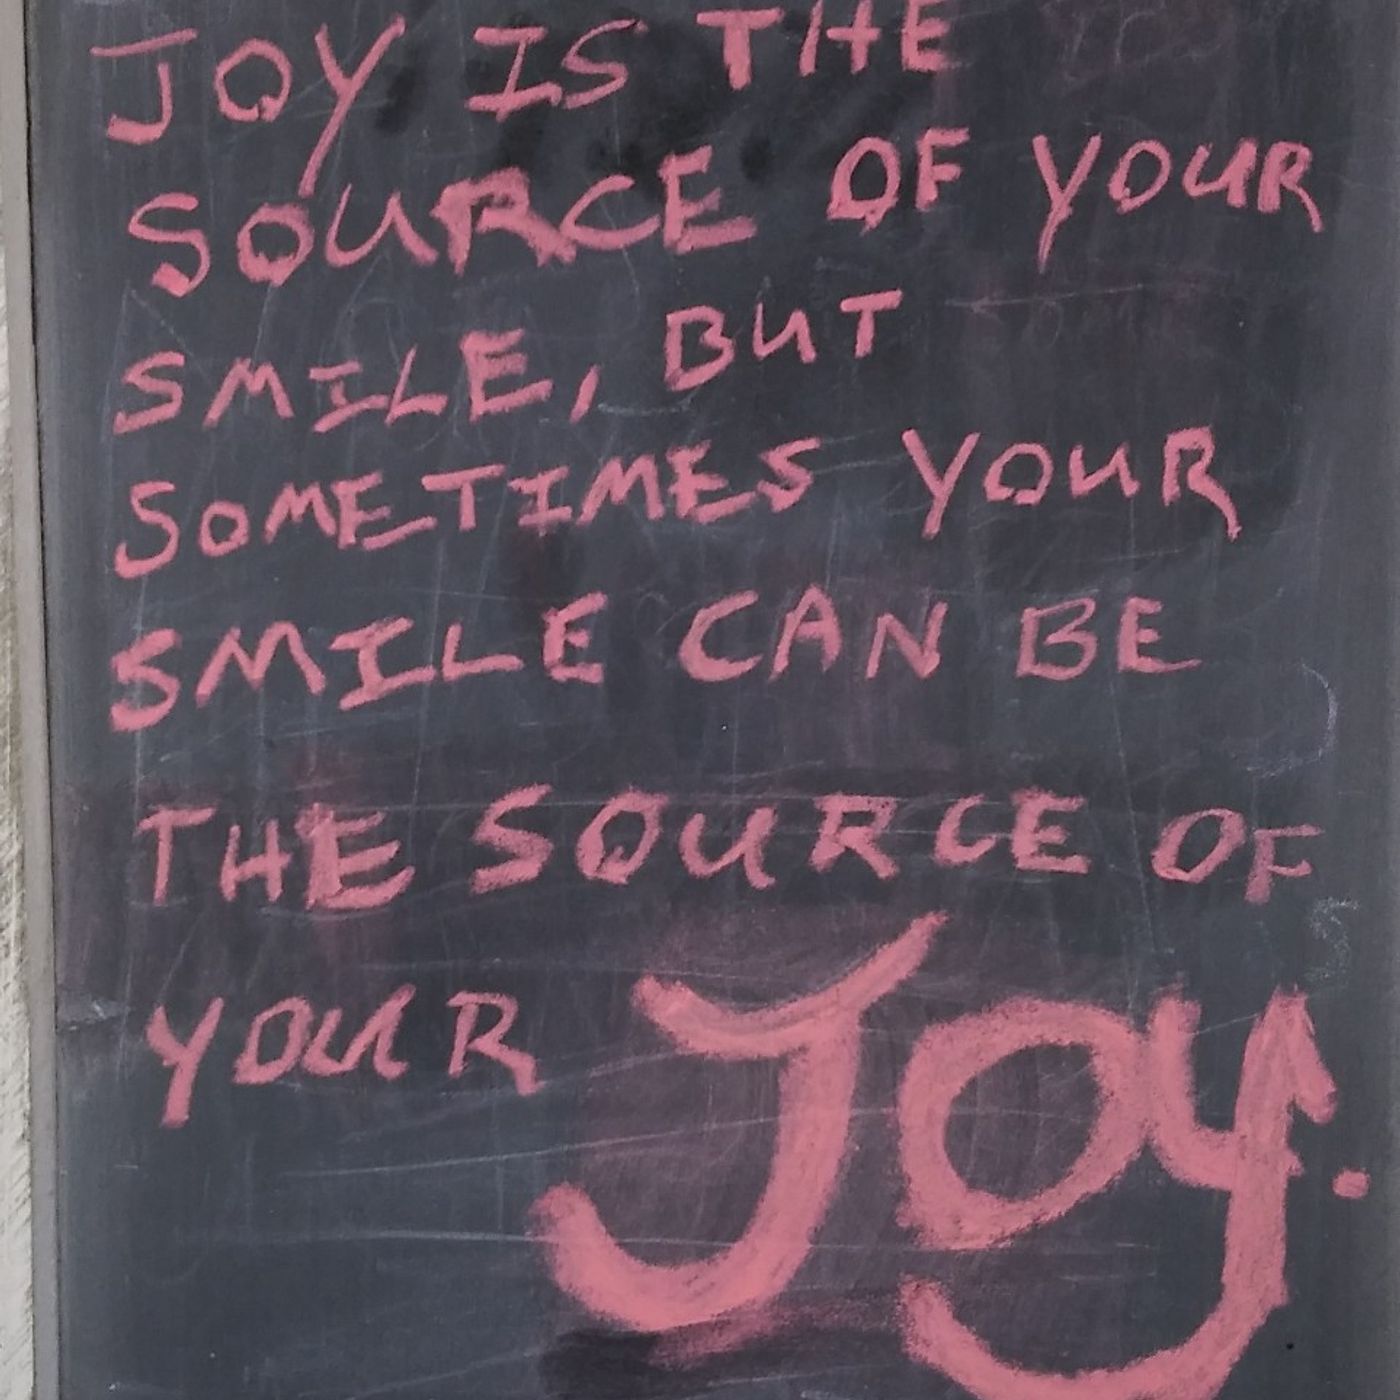 JOY IS THE
SOURCE OF YOUR
SMILE, BUT
SOMETIMES YOUR
SMILE CAN BE
THE SOURCE OF
YOUR Joy.